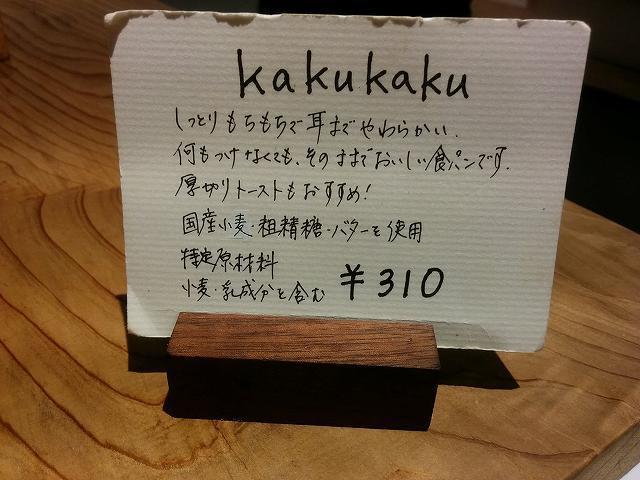 kakukaku
しっとりもちもちで耳までやわらかい.
何もつけなくても、そのままでおいしい食パンです.
厚切りトーストもおすすめ!
国産小麦・粗精糖・バターを使用
特定原材料
小麦・乳成分を含む ¥310